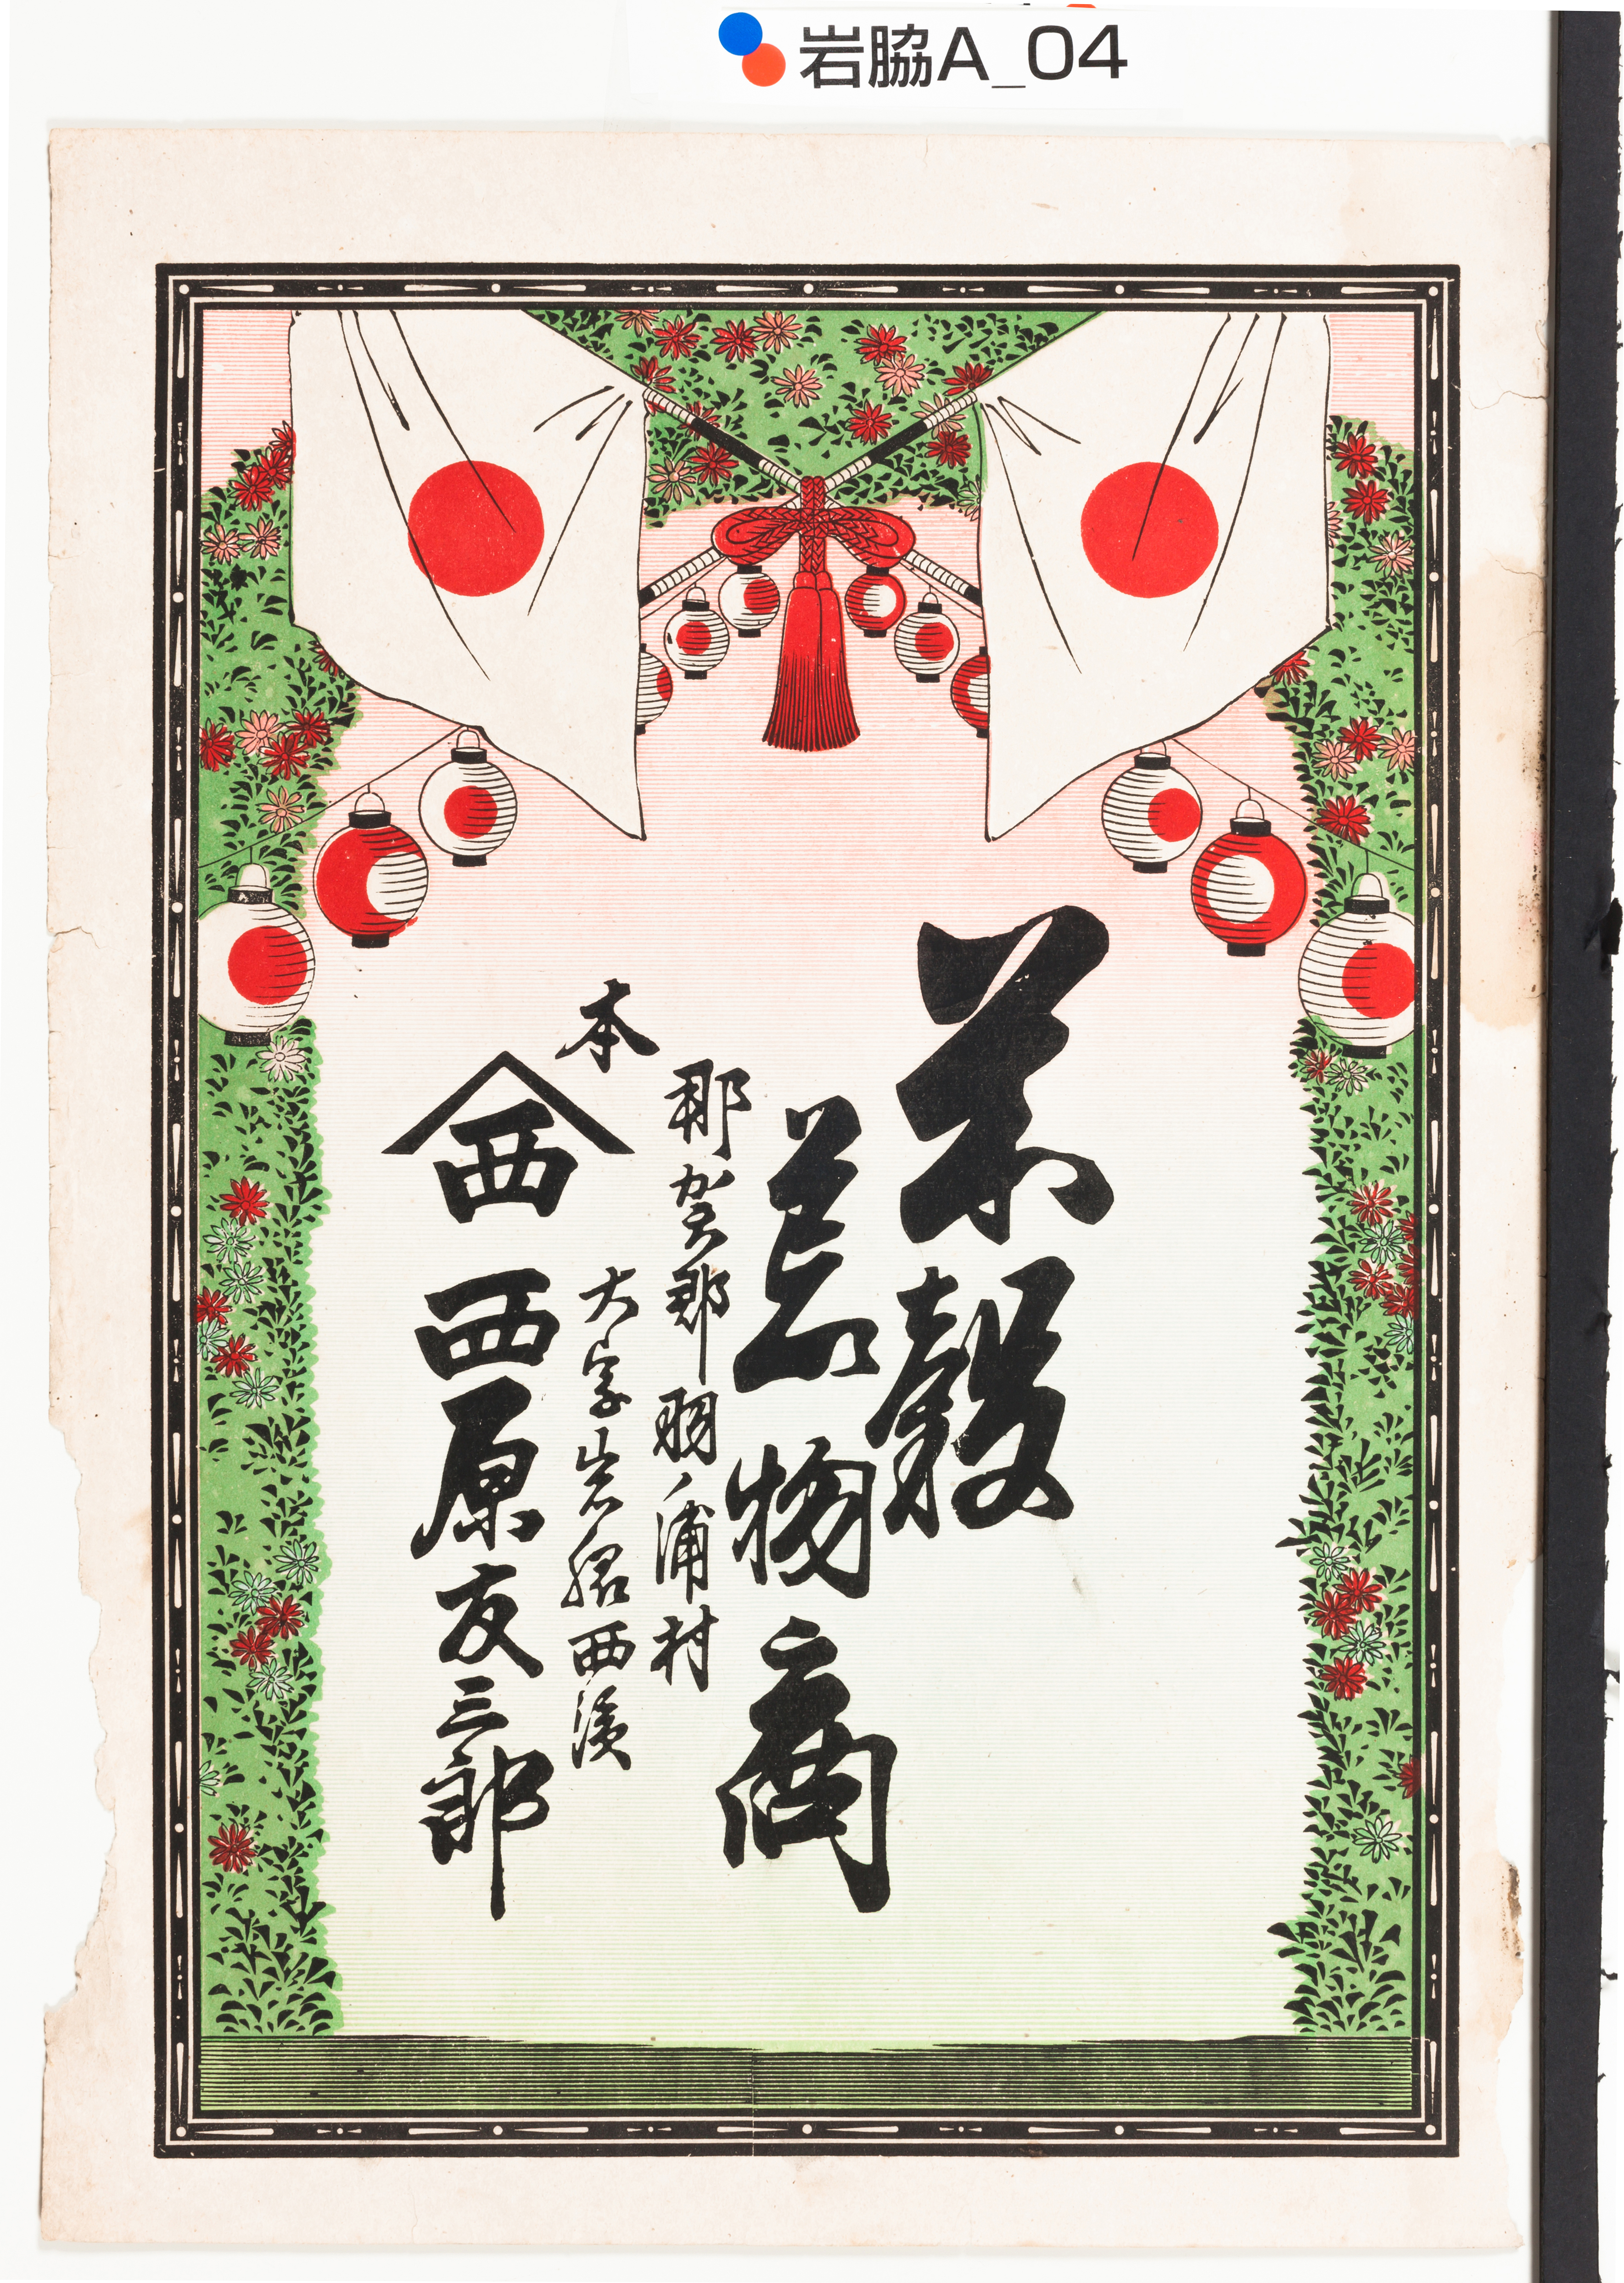 岩脇A_04
米穀
荒物商
那賀郡羽ノ浦村
大字岩脇西濱
本
西
西原友三郎